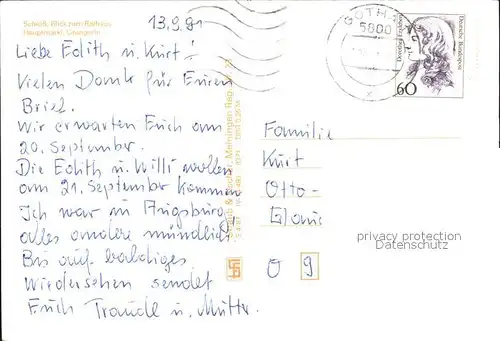 Schloß, Blick zum Rathaus
Hauptmarkt, Orangerie
13.9.91
Liebe Edith u. Kurt!
Vielen Dank für Euren
Brief.
Wir erwarten Euch am
20. September.
Die Edith u. Willi wollen
am 21. September kommen.
Ich war in Augsburg,
alles andere mündlich!
Bis auf baldiges
Wiedersehen sendet
Euch Traudl u. Mutti.
GOTHA
5800
Deutsche Bundespost
Dorothea Erxleben
60
Familie
Kurt
Otto-
privacy protection
Datenschutz
O 9